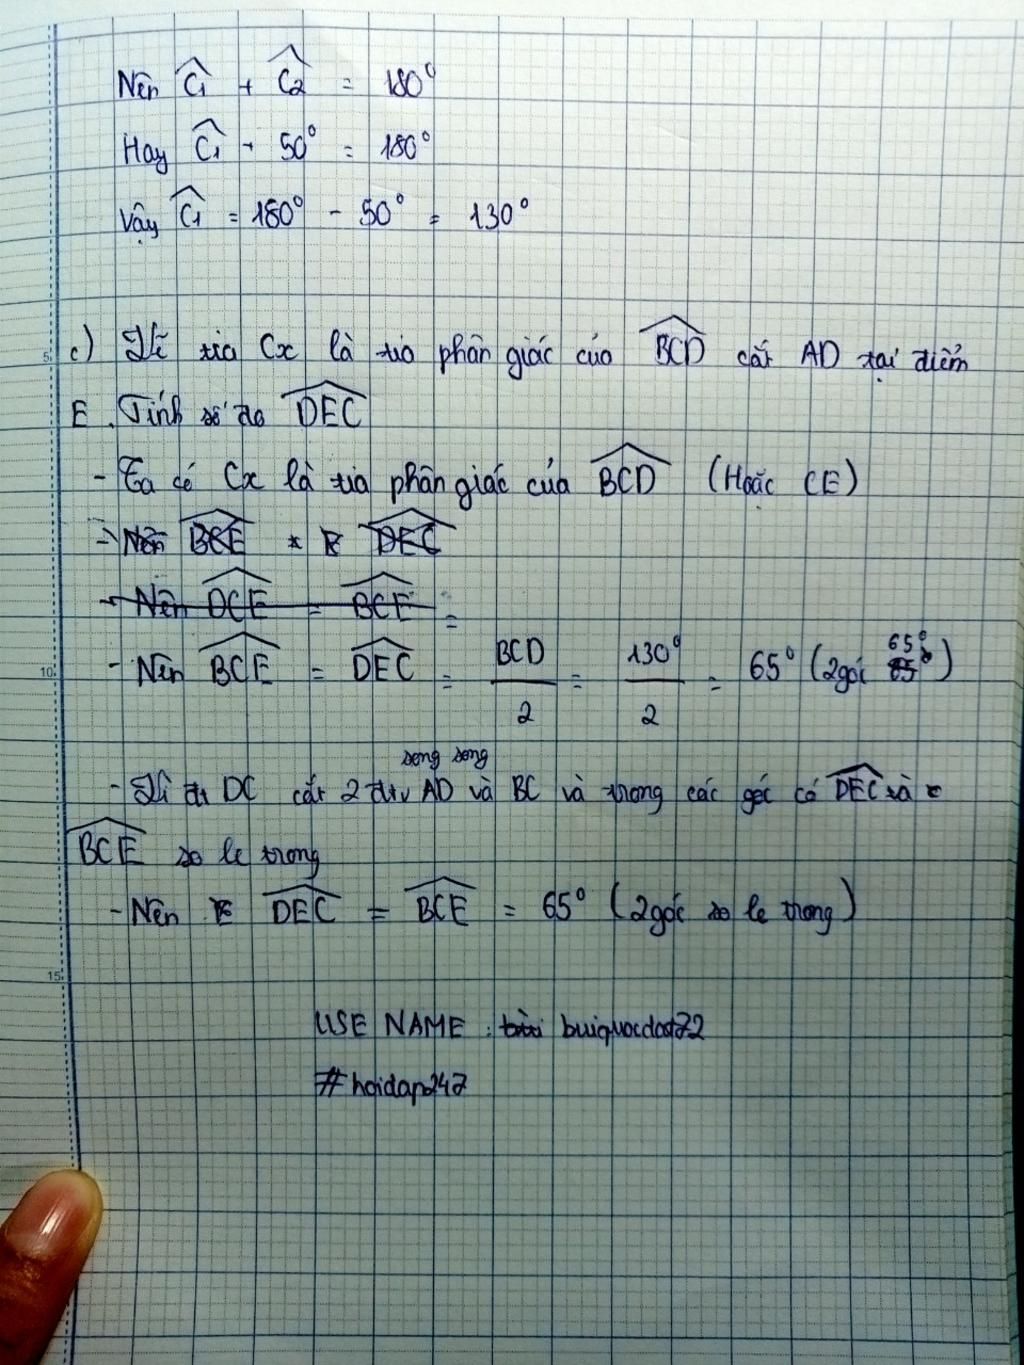 Nên C1 + C2 = 180°
Hay C1 + 50° = 180°
Vậy C1 = 180° - 50° = 130°
5
c) Vẽ tia Cx là tia phân giác của BCD cắt AD tại điểm
E. Tính số đo DEC
- Ta có Cx là tia phân giác của BCD (Hoặc CE)
- Nên BCE = DEC
- Nên DCE = BCE =
10 - Nên BCE = DEC = BCD/2 = 130°/2 = 65° (2góc 65°)
song song
- Vì đt DC cắt 2 đtv AD và BC và trong các góc có DEC và
BCE so le trong
- Nên DEC = BCE = 65° (2góc so le trong)
15
USE NAME: buiquocdat72
#hoidap247